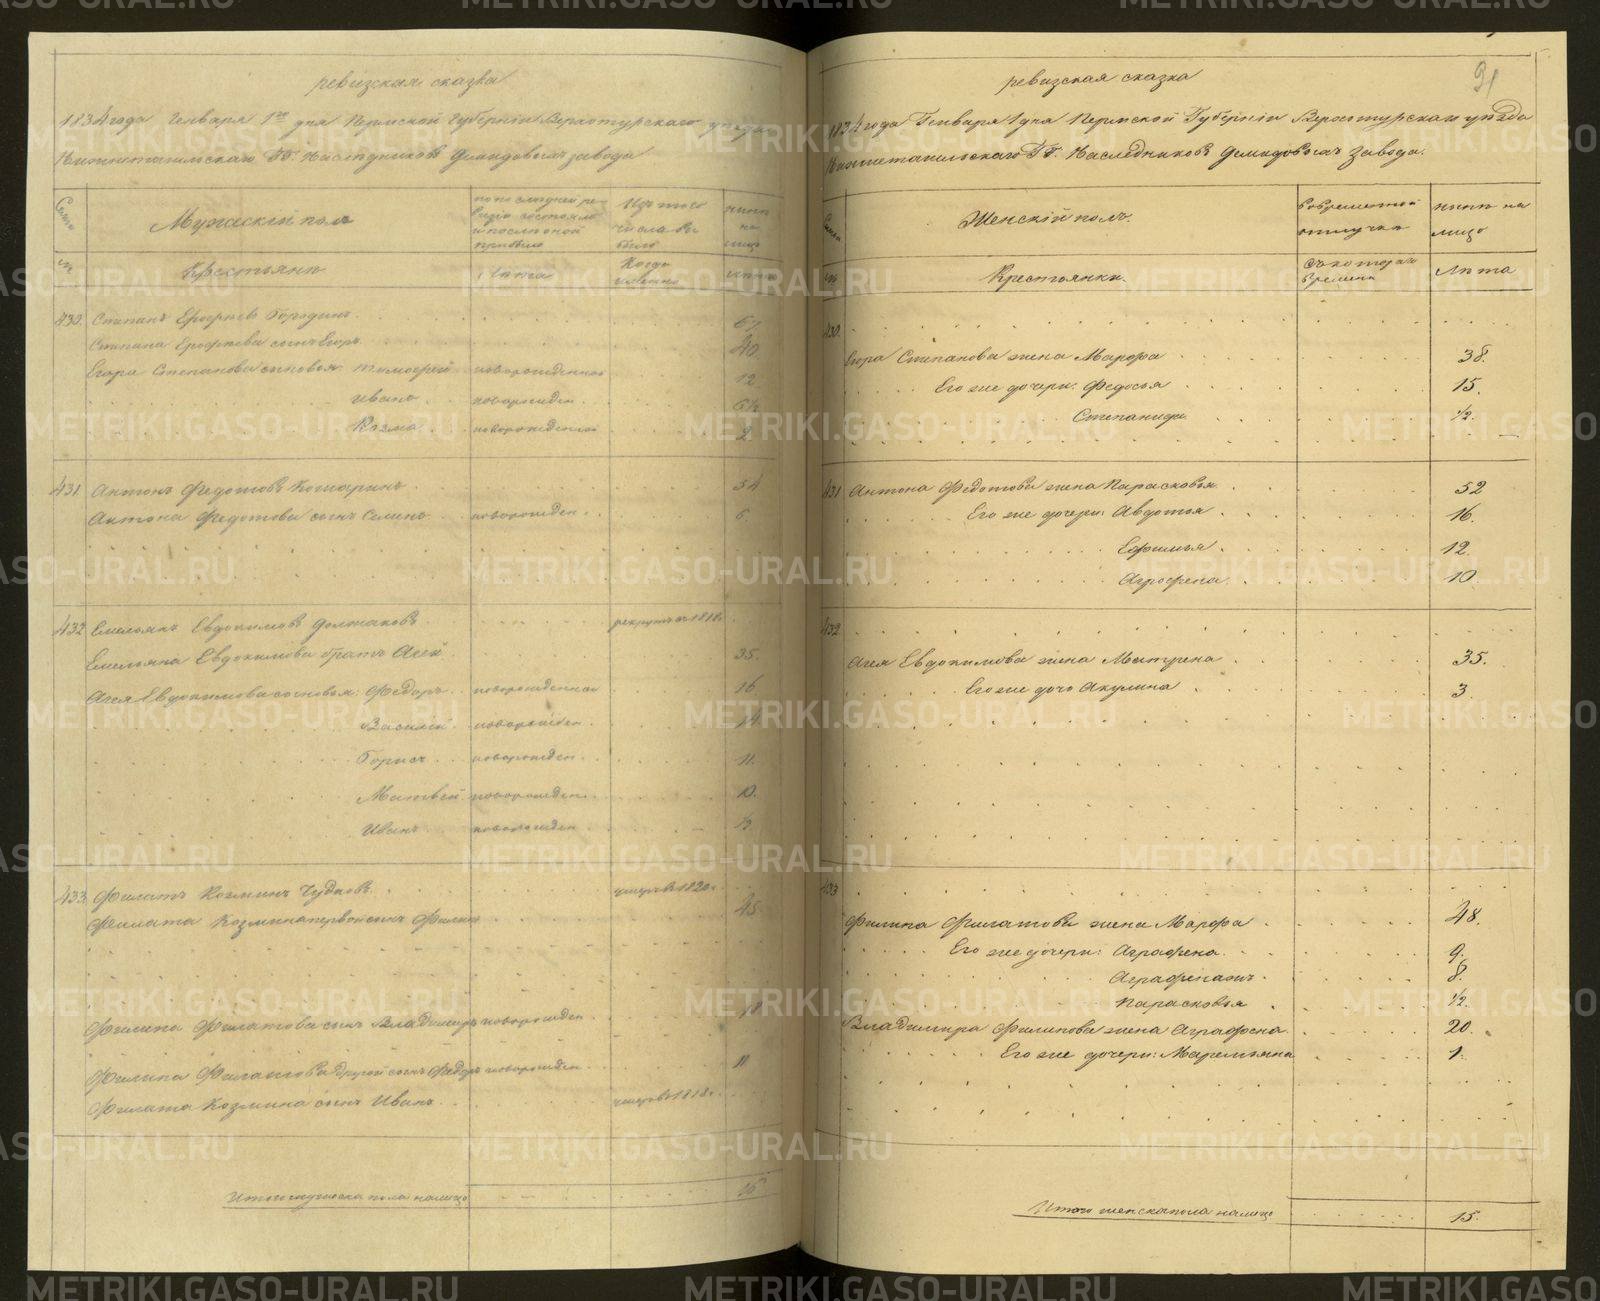 ревизская сказка
1834 года Генваря 1го дня Пермской Губернiи Верхотурскаго уезда
Нижнетагильскаго ГГ. Наследниковъ Демидовыхъ завода
Семьи
Мужескiй полъ
по последней ревизiи состояло и после оной прибыло
Изъ того числа выбыло
ныне на лицо
№
Крестьяне
Лета
Когда именно
Лета
430. Степанъ Ерофеевъ Бородинъ 67
Степана Ерофеева сынъ Егоръ 40.
Егора Степанова сыновья: Тимофей новорожденной 12
Иванъ новорожден. 6½
Козма новорожденной 2
431. Антонъ Федотовъ Кошаринъ 54
Антона Федотова сынъ Семенъ новорожден. 6.
432 Емельянъ Евдокимовъ Долмаковъ рекрутъ въ 1818.
Емельяна Евдокимова братъ Агей 35.
Агея Евдокимова сыновья: Федоръ новорожденной 16
Василий новорожден. 14
Борисъ новорожден. 11.
Матвей новорожден. 10.
Иванъ новорожден. ½
433. Филатъ Козминъ Чудовъ умеръ в 1820.
Филата Козмина первой сынъ Филинъ 45
Филина Филатова сынъ Владимиръ новорожден.
Филина Филатова другой сынъ Федоръ новорожден. 11
Филата Козмина сынъ Иванъ умеръ в 1818.
Итого мужеска пола налицо 16
91
ревизская сказка
1834 года Генваря 1 дня Пермской Губернiи Верхотурскаго уезда
Нижнетагильскаго ГГ. Наследниковъ Демидовыхъ завода.
Семьи
Женскiй полъ.
во временной отлучке
ныне на лицо
№
Крестьянки.
Съ котораго времени
Лета
430.
Егора Степанова жена Марфа 38.
Его же дочери: Федосья 15.
Степанида ½.
431 Антона Федотова жена Парасковья 52
Его же дочери: Авдотья 16.
Ефимья 12.
Агрофена 10.
432
Агея Евдокимова жена Матрена 35.
Его же дочь Акулина 3.
433
Филина Филатова жена Марфа 48.
Его же дочери: Аграфена 9.
Аграфена жъ 8.
Парасковья ½.
Владимира Филинова жена Аграфена 20.
Его же дочери: Маремьяна 1.
Итого женска пола налицо 15.
METRIKI.GASO-URAL.RU